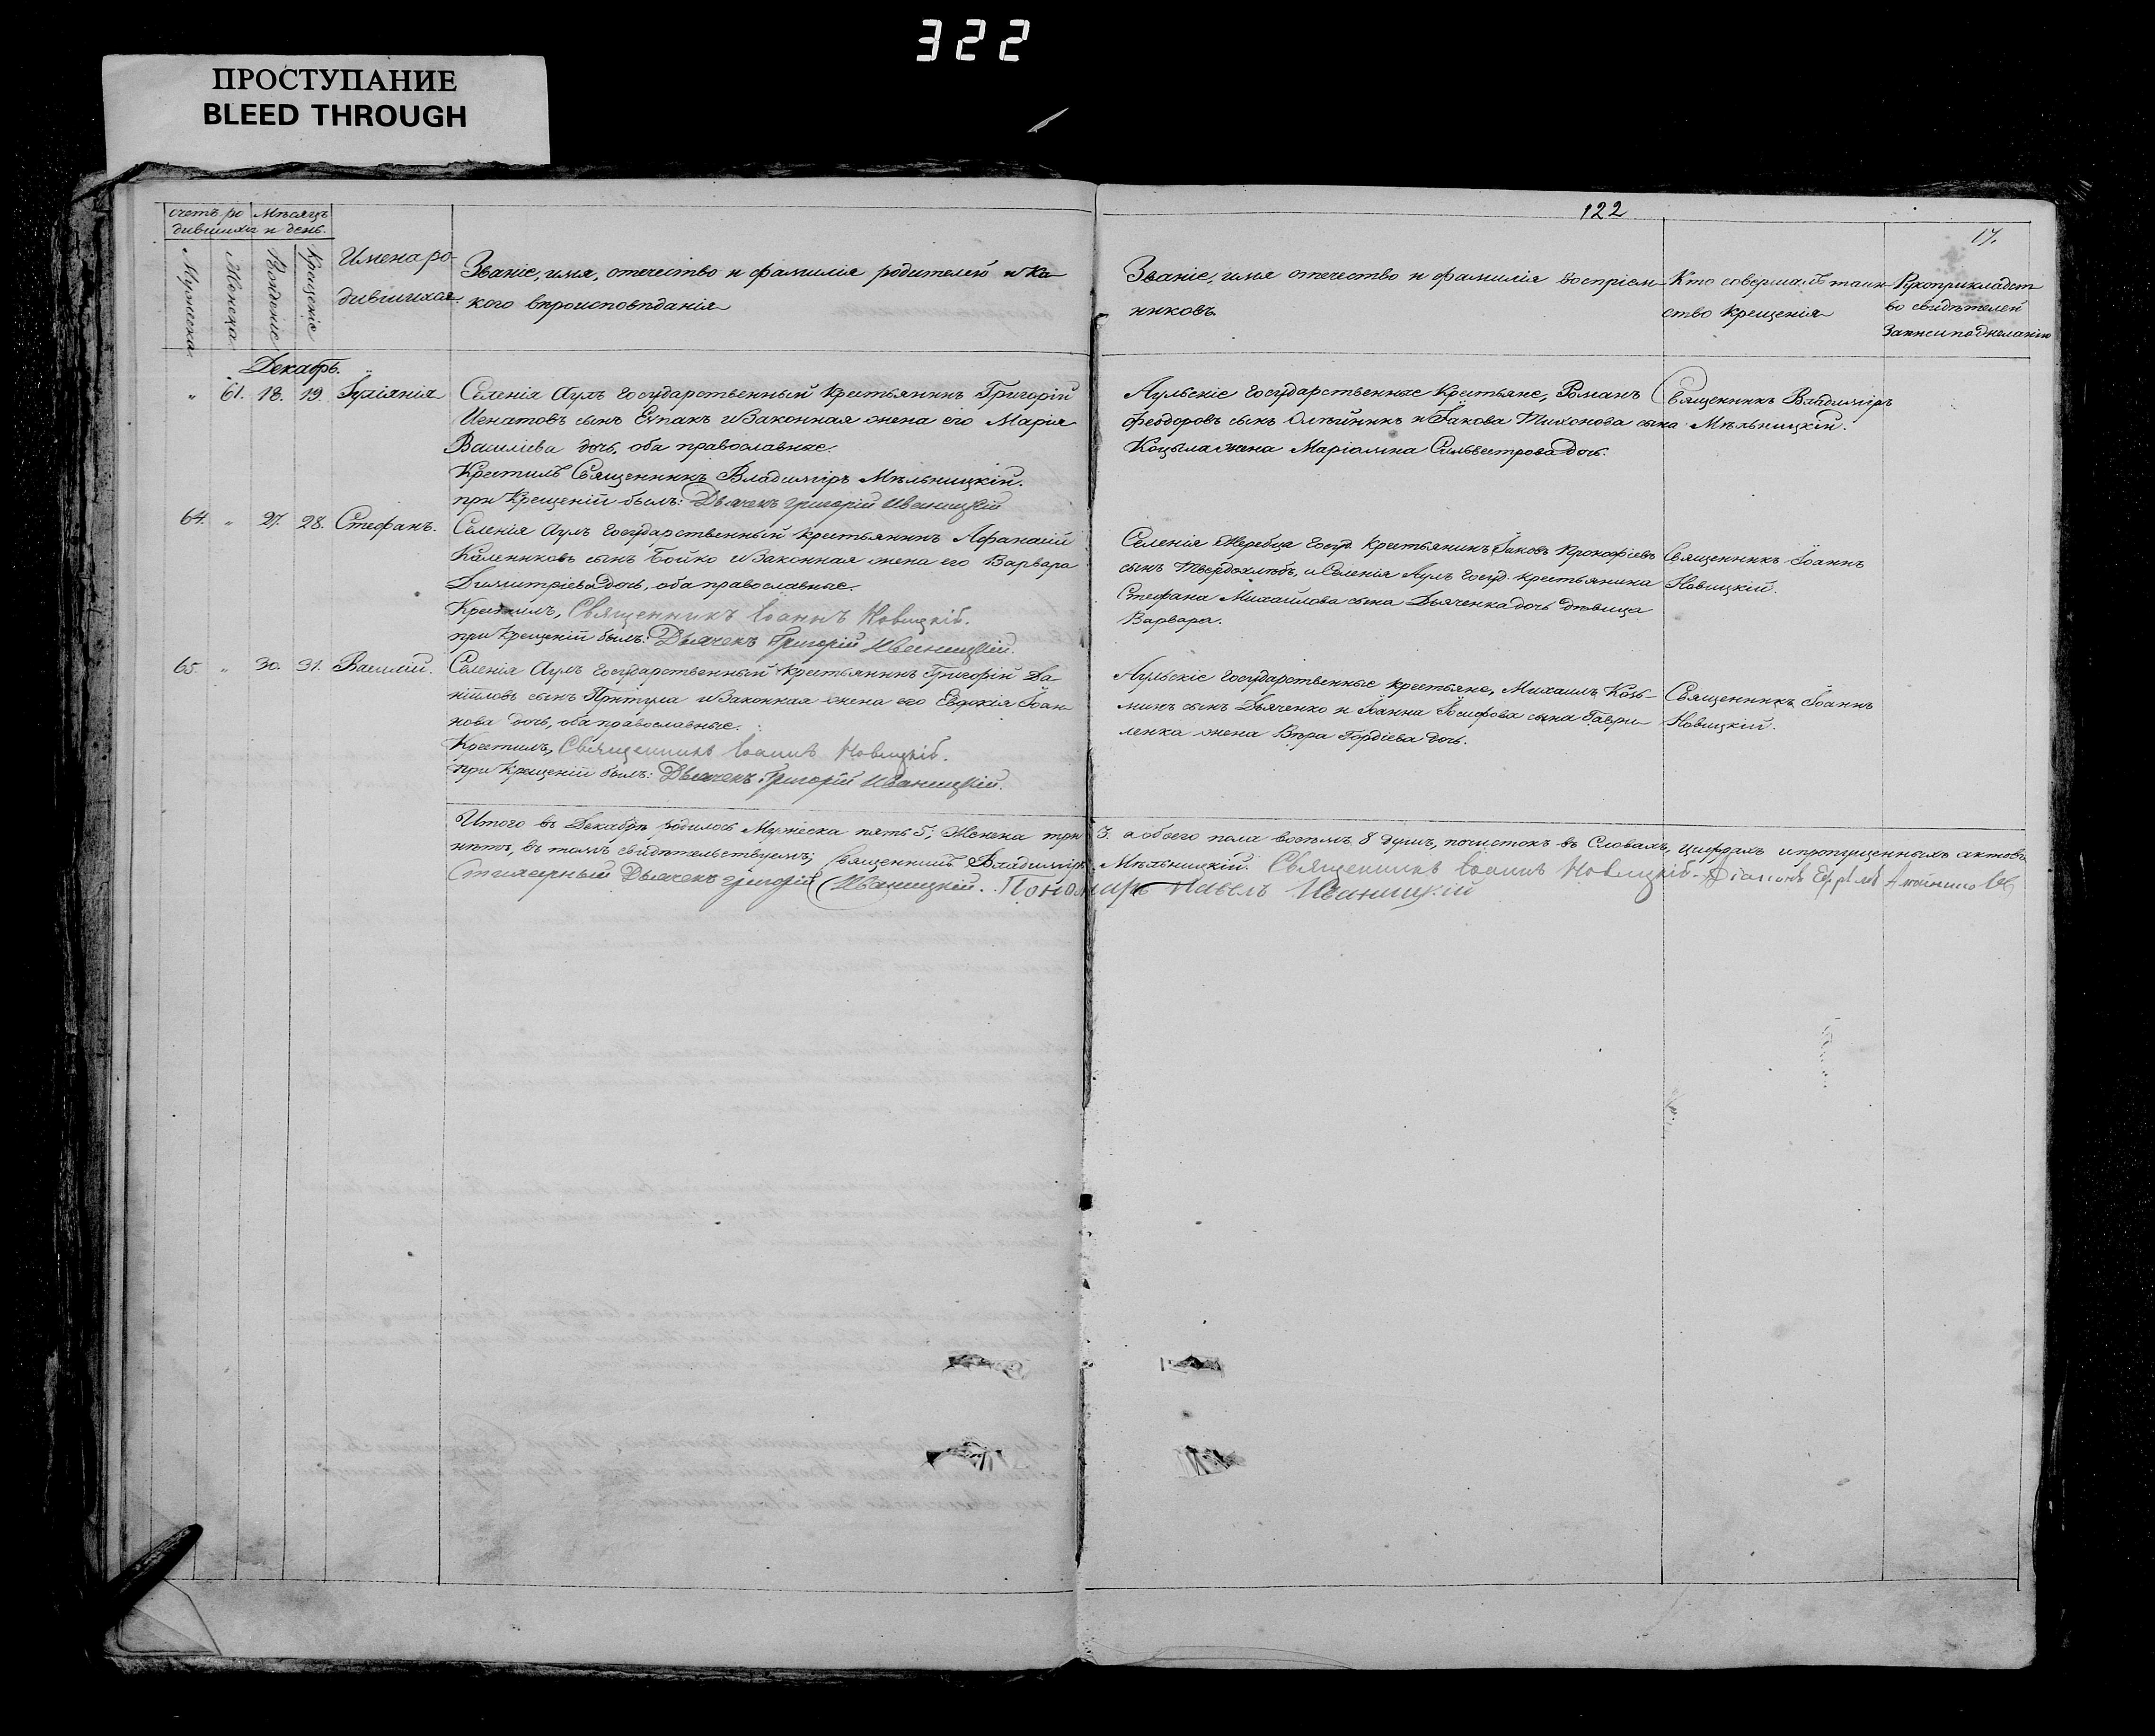 322
ПРОСТУПАНИЕ
BLEED THROUGH
122
17.
счетъ ро
дившихся
Мѣсяцъ
и день.
Мужеска.
Женска.
Рожденіе
Крещеніе
Имена ро-
дившихся.
Званіе, имя, отечество и фамилія родителей и ка-
кого вѣроисповѣданія
Званіе, имя отечество и фамилія воспріем-
никовъ.
Кто совершалъ таин-
ство крещенія
Рукоприкладст
во свидѣтелей
записи по желанію
Декабрь.
„ 61. 18. 19. Іуліянія
Селенія Аулъ Государственный крестьянинъ Григорій
Игнатовъ сынъ Епакъ и законная жена его Марія
Василіева дочь, оба православные.
Крестилъ Священникъ Владиміръ Мѣльницкій.
при Крещеніи былъ: Дьячекъ Григорій Иваницкій
Аульскіе Государственные Крестьяне, Романъ
Феодоровъ сынъ Олѣйникъ и Іакова Тихонова сына
Коцыла жена Маріамна Сильвестрова дочь.
Священникъ Владиміръ
Мѣльницкій.
64. „ 27. 28. Стефанъ.
Селенія Аулъ Государственный крестьянинъ Афанасій
Каленниковъ сынъ Бойко и законная жена его Варвара
Димитріева дочь, оба православные.
Крестилъ, Священникъ Іоаннъ Новицкій.
при Крещеніи былъ: Дьячекъ Григорій Иваницкій.
Селенія Жеребца Госуд. Крестьянинъ Іаковъ Прокофіевъ
сынъ Твердохлѣбъ, и Селенія Аулъ Госуд. крестьянина
Стефана Михайлова сына Дьяченка дочь дѣвица
Варвара.
Священникъ Іоаннъ
Новицкій.
65. „ 30. 31. Василій.
Селенія Аулъ Государственный крестьянинъ Григорій Да-
ніиловъ сынъ Притула и законная жена его Евдокія Іоан-
нова дочь, оба православные.
Крестилъ, Священникъ Іоаннъ Новицкій.
при Крещеніи былъ: Дьячекъ Григорій Иваницкій.
Аульскіе Государственные крестьяне, Михаилъ Козь-
минъ сынъ Дьяченко и Іоанна Іосифова сына Гаври-
ленка жена Вѣра Гордіева дочь.
Священникъ Іоаннъ
Новицкій.
Итого въ Декабрѣ родилось Мужеска пять 5, Женска три 3. а обоего пола восемь 8 душъ, почистокъ въ Словахъ, цифрахъ и пропущенныхъ актовъ
нѣтъ, въ томъ свидѣтельствуемъ; Священникъ Владиміръ Мѣльницкій. Священникъ Іоаннъ Новицкій. Діаконъ
Дьячекъ Григорій Иваницкій. Пономарь Павелъ Иваницкій